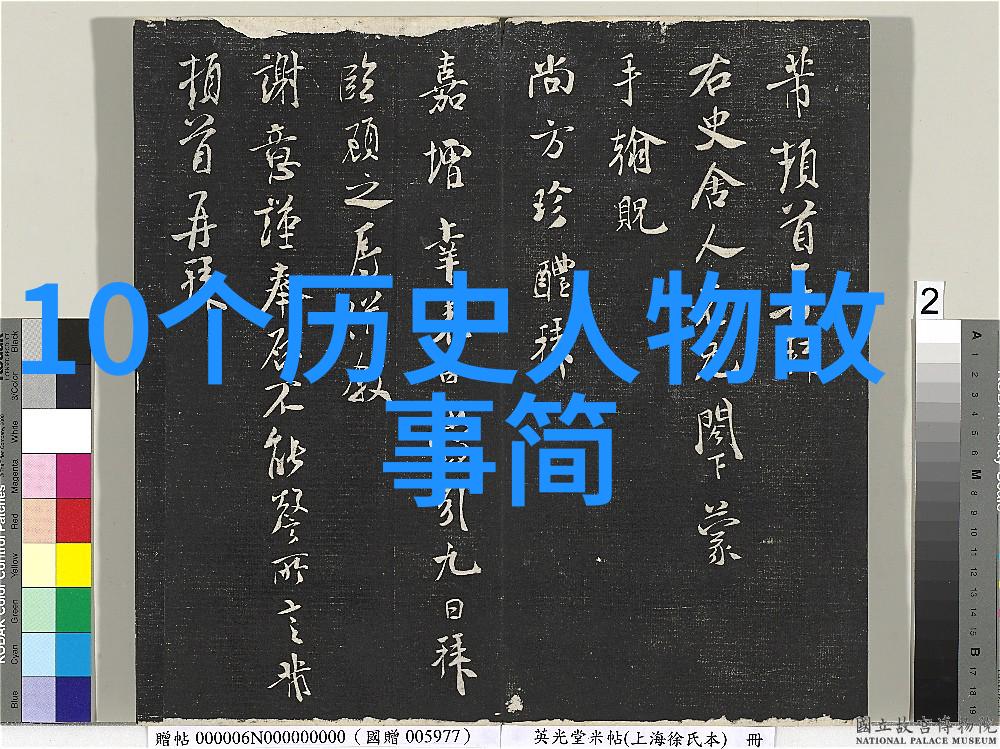 芾頓首再拜
右史舍人
閣下蒙
手翰貺
尚方珍醴拜
嘉增幸
引九日拜
臨顧之辱
謝意謹奉啓不能盡所言芾
頓首再拜
10个历史人物故
事简
2
贈帖 000006N000000000 (國贈 005977)
英光堂米帖(上海徐氏本) 冊
國立故宮博物院
NATIONAL PALACE MUSEUM
Black
3/Color
White
Magenta
Red
Yellow
Green
Cyan
Blue
KODAK Color Control Patches
A 1 2 3 4 5 6 M 8 9 10 11 12 13 14 15 B 17 18 19